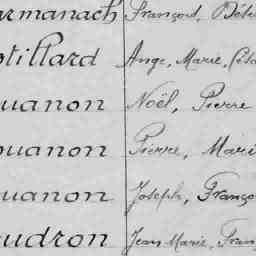 armanach François, Dési
otillard Ange, Marie, Céles
ouanon Noël, Pierre
ouanon Pierre, Mari
ouanon Joseph, Franço
oudron Jean Marie, Fran